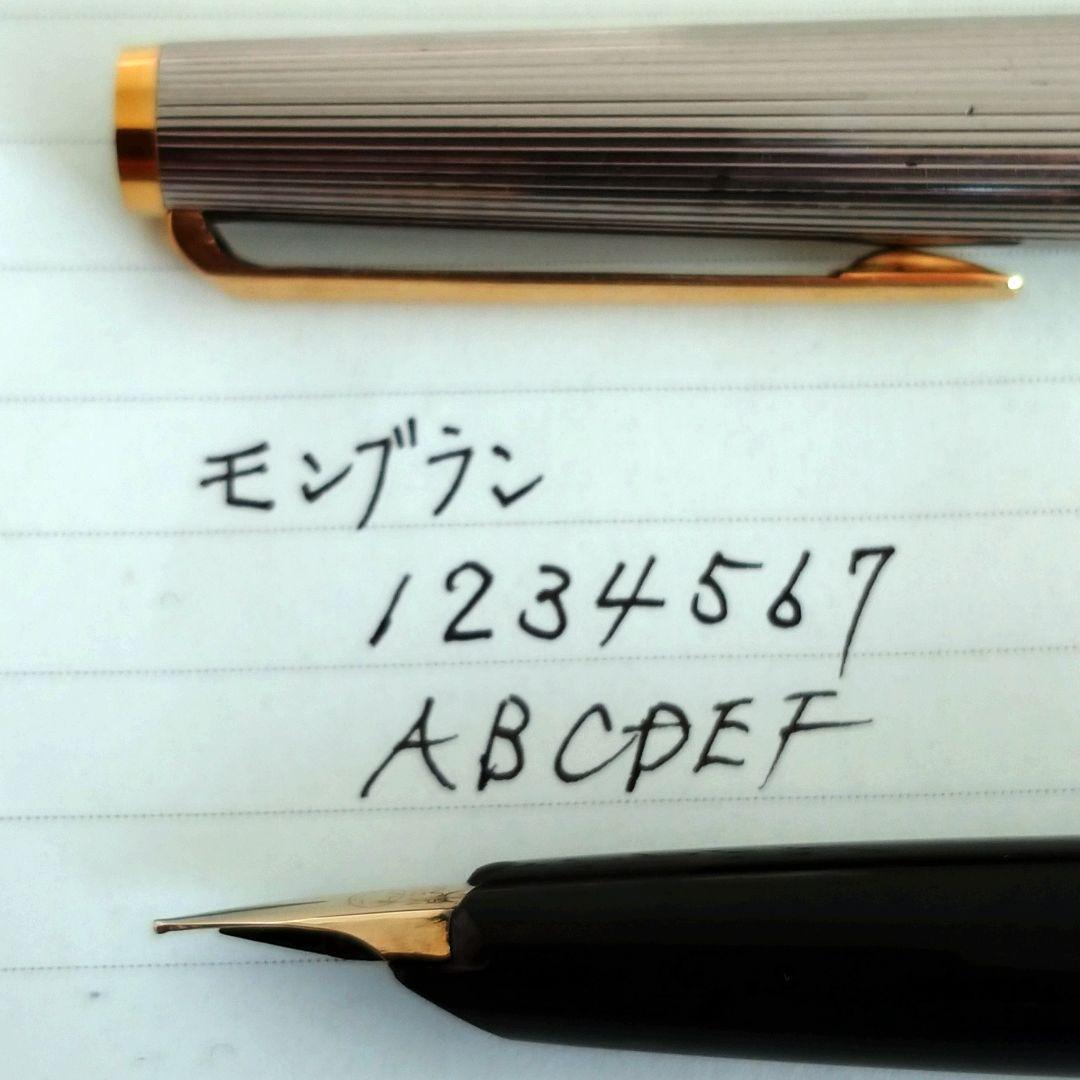 モンブラン
1234567
ABCDEF